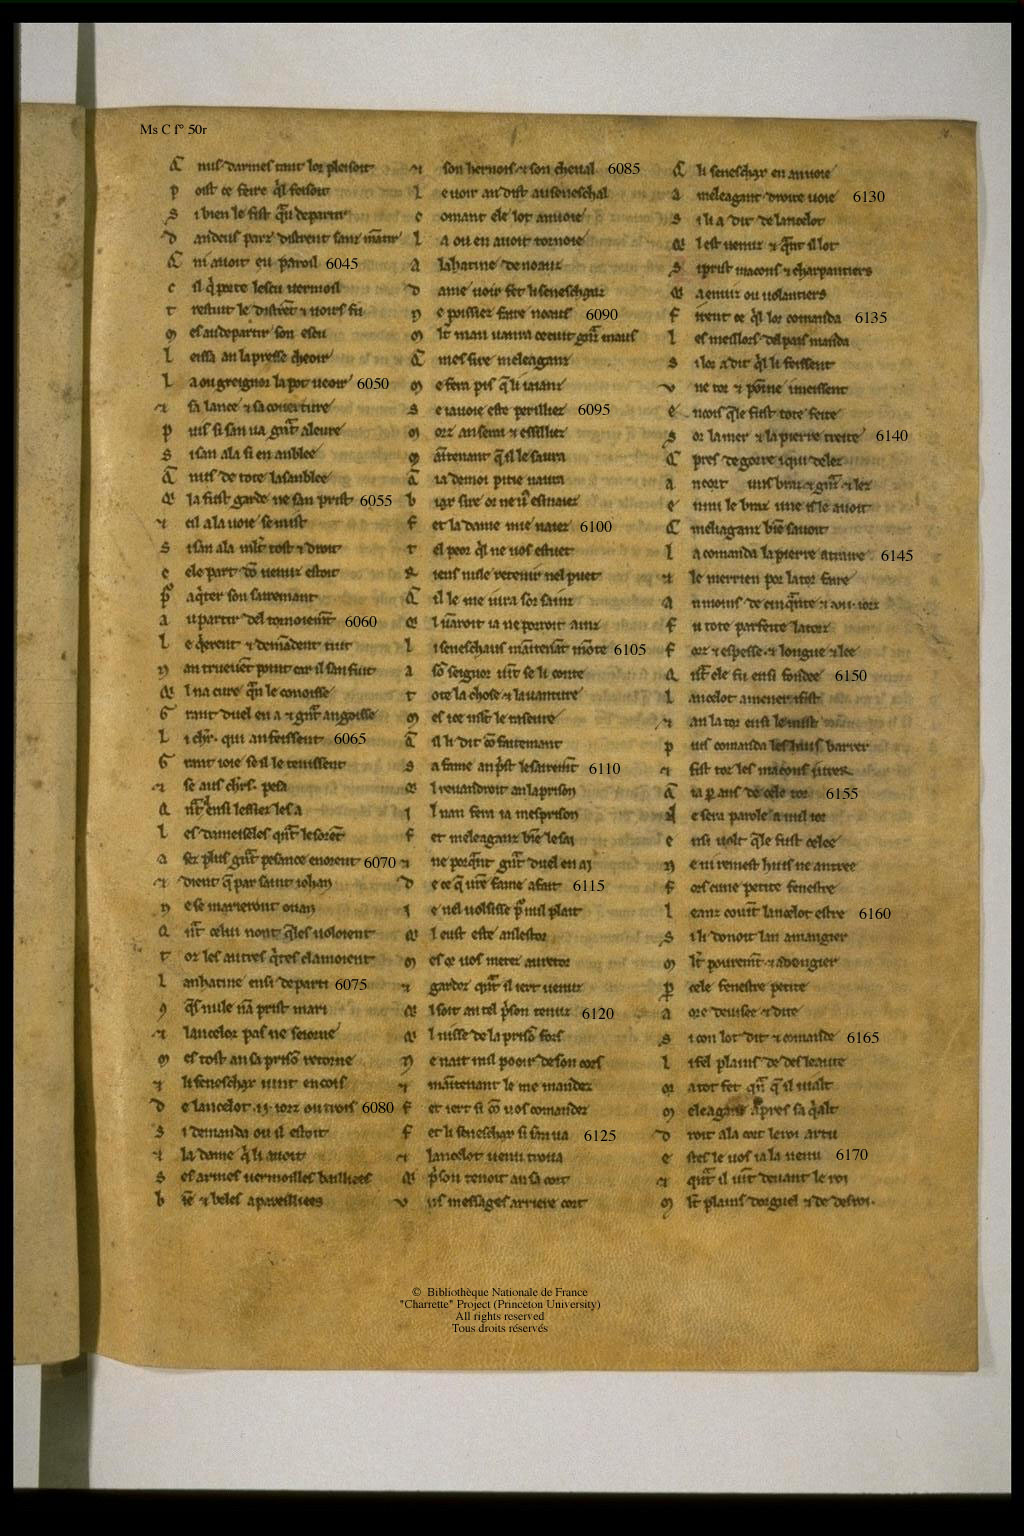 Ms C f° 50r
A nuit darmes tant lor pleisoit
P oist ce feire q̃l feisoit
S i bien le fist q̃u departir
D andeus parz distrent sanz mãtir
Q ni avoit eu paroil 6045
C il q̃ porte lescu vermoil
T restuit le distrẽt & voirs fu
M es au departir son escu
L eissa an la presse cheoir
L a ou greignor la pot veoir 6050
& sa lance & sa coverture
P uis si san va grãt aleure
S i san ala si en anblee
Q nus de tote lasanblee
Q la fust garde ne san prist 6055
& cil a la voie se mist
S i san ala mlt tost & droit
C ele part dõ venuz estoit
P aq̃ter son sairemant
A u partir del tornoiemt̃ 6060
L e q̃rent & demãdent tuit
N an truevẽt point car il san fuit
Q l na cure q̃n le conoisse
G rant duel en a & grãt angoisse
L i chr̃. qui an feissent 6065
G rant ioie se il le tenissent
& se aus chrs. pesa
Q nt ensi lessiez les a
L es dameiseles qnt le sorẽt
A sez plus grãt pesance en orent 6070
& dient q̃ par saint iohan
N e se marieront ouan
Q nt celui nont q̃les voloient
T oz les autres q̃tes clamoient
L anhatine ensi departi 6075
9 q̃s nule nã prist mari
& lancelot pas ne seiorne
M es tost an sa prisõ retorne
& li seneschax vint encois
D e lancelot .ii. iorz ou trois 6080
S i demanda ou il estoit
& la dame q̃ li avoit
S es armes vermoilles bailliees
B iẽ & beles apareilliees
& son hernois & son cheval 6085
L e voir an dist au seneschal
C omant ele lot anvoie
L a ou en avoit tornoie
A lahatine de noauz
D ame voir fet li seneschauz
N e poissiez faire noaus 6090
M lt man vanra ce cuit grãz maus
Q mes sire meleaganz
M e fera pis q̃ li iaianz
S e iavoie este perilliez 6095
M orz an serai & essilliez
M ãtenant q̃ il le savra
Q ia de moi pitie navra
B iax sire or ne vos esmaiez
F et la dame mie naiez 6100
T el peor q̃l ne vos estuet
R iens nule retenir nel puet
Q il le me iura sor sainz
Q l vãroit ia ne porroit ainz
L i seneschaus mãtenãt mõte 6105
A sõ seignor vint se li conte
T ote la chose & lavanture
M es ice mlt le rasseure
Q il li dit cõ faitemant
S a fame an pst le sairemt̃ 6110
Q l revandroit an la prison
I l nan fera ia mesprison
F et meleaganz biẽ le sai
& ne porq̃nt grãt duel en ai
D e ce q̃ vr̃e fame a fait 6115
I e nel volsisse por nul plait
Q l eust este an lestor
M es or vos metez au retor
& gardez qnt̃ il iert venuz
Q l soit an tel prison tenuz 6120
Q l nisse de la prisõ fors
N e nait nul pooir de son cors
& mãtenant le me mandez
F et iert si cõ vos comandez
F et li seneschax si san va 6125
& lancelot venu trova
Q prison tenoit an sa cort
U ns messages arriere cort
Q li seneschax en anvoie
A meleagant droite voie 6130
S i li a dit de lancelot
Q l est venuz & qnt il lot
S i prist macons & charpantiers
Q a enviz ou volantiers
F irent ce q̃l lor comanda 6135
L es meillors del pais manda
S i lor a dit q̃l li feissent
U ne tor & poine i meissent
E ncois q̃le fust tote feite
S or la mer & la pierre treite 6140
Q pres de gorre iqui delez
A ncort uns braz & grãz & lez
E nmi le braz une isle avoit
Q meliaganz biẽ savoit
L a comanda la pierre atraire 6145
& le merrien por la tor faire
A n moins de cinq̃nte & .vii. iorz
F u tote parfeite la torz
F orz & espesse & longue & lee
Q nt̃ ele fu ensi fondee 6150
L ancelot amener i fist
& an la tor ensi le mist
P uis comanda les huis barrer
& fist toz les macons iurer
Q ia p aus de cele tor 6155
N e sera parole a nul ior
E nsi volt q̃le fust celee
N e ni remest huis ne antree
F ors c'une petite fenestre
L eanz covint lancelot estre 6160
S i li donoit lan a mangier
M lt povremt̃ & a dongier
P cele fenestre petite
A ore devisee & dite
S i con lot dit & comande 6165
L i fel plains de desleaute
Or a tot fet qnq̃ q̃ il vialt
M eleaganz apres sa q̃alt
D roit a la cort le roi artu
E stes le vos ia la venu 6170
& qnt̃ il vint devant le roi
M lt plains dorguel & de desroi.
© Bibliothèque Nationale de France
"Charrette" Project (Princeton University)
All rights reserved
Tous droits réservés